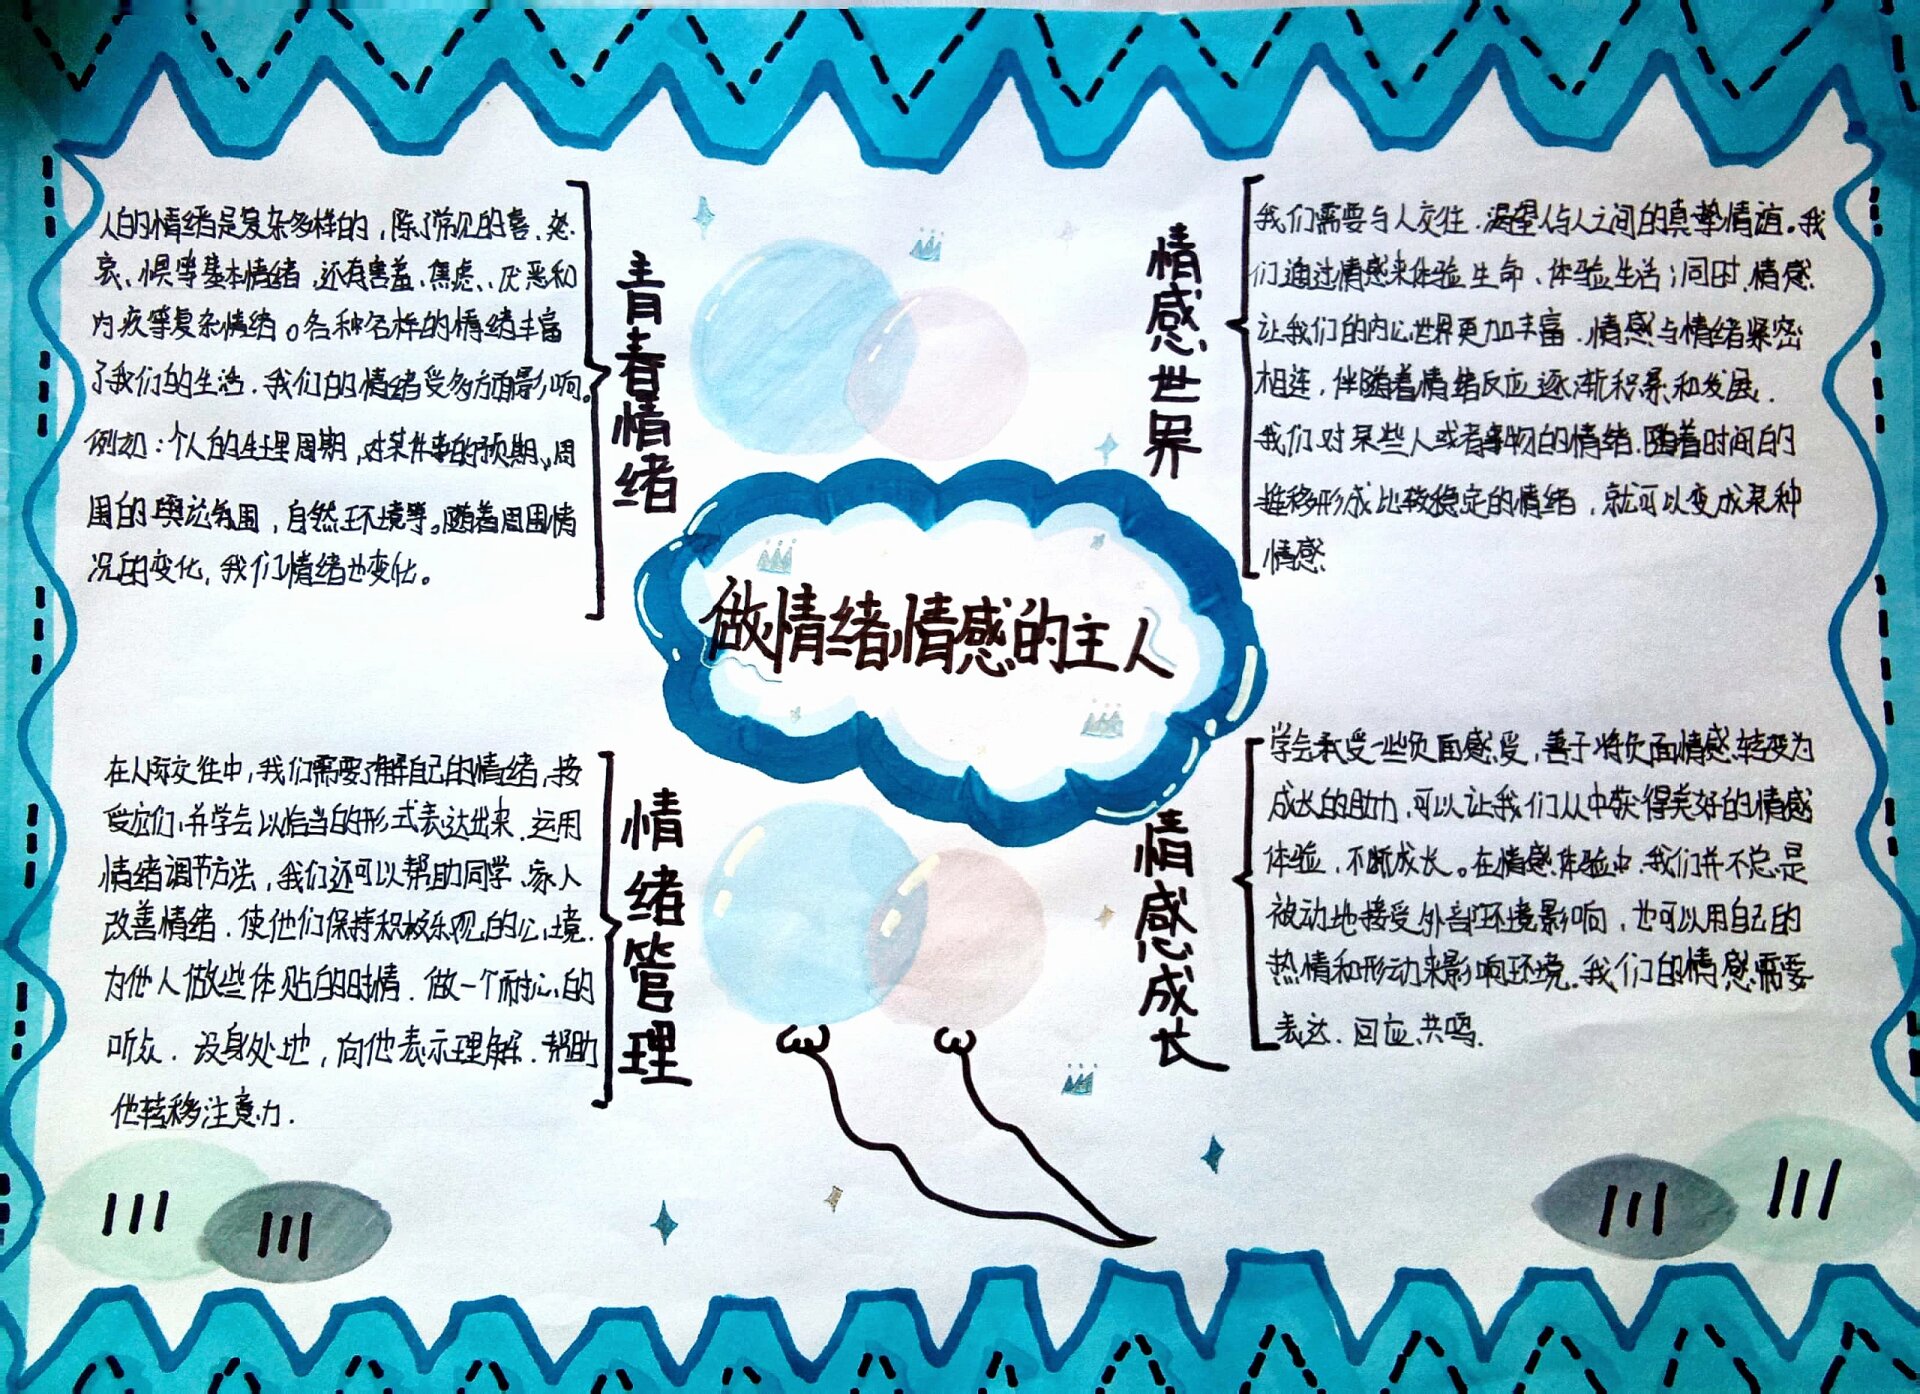 人的情绪是复杂多样的,除了常见的喜、怒、
哀、惧等基本情绪,还有害羞、焦虑、厌恶和
内疚等复杂情绪。各种各样的情绪丰富
了我们的生活.我们的情绪受多方面影响。
例如:个人的生理周期,对某件事的预期、周
围的舆论氛围,自然环境等。随着周围情
况的变化,我们情绪也变化。
青春情绪
情感世界
我们需要与人交往.渴望人与人之间的真挚情谊。我
们通过情感来体验生命、体验生活;同时.情感
让我们的内心世界更加丰富.情感与情绪紧密
相连,伴随着情绪反应逐渐积累和发展.
我们对某些人或者事物的情绪.随着时间的
推移形成比较稳定的情绪,就可以变成某种
情感
做情绪情感的主人
在人际交往中,我们需要了解自己的情绪,接
受它们,并学会以恰当的形式表达出来.运用
情绪调节方法,我们还可以帮助同学、家人
改善情绪.使他们保持积极乐观的心境.
为他人做些体贴的事情.做一个耐心的
听众.设身处地,向他表示理解.帮助
他转移注意力.
情绪管理
情感成长
学会承受一些负面感受,善于将负面情感转变为
成长的助力,可以让我们从中获得美好的情感
体验,不断成长。在情感体验中.我们并不总是
被动地接受外部环境影响,也可以用自己的
热情和形动来影响环境.我们的情感需要
表达.回应.共鸣.